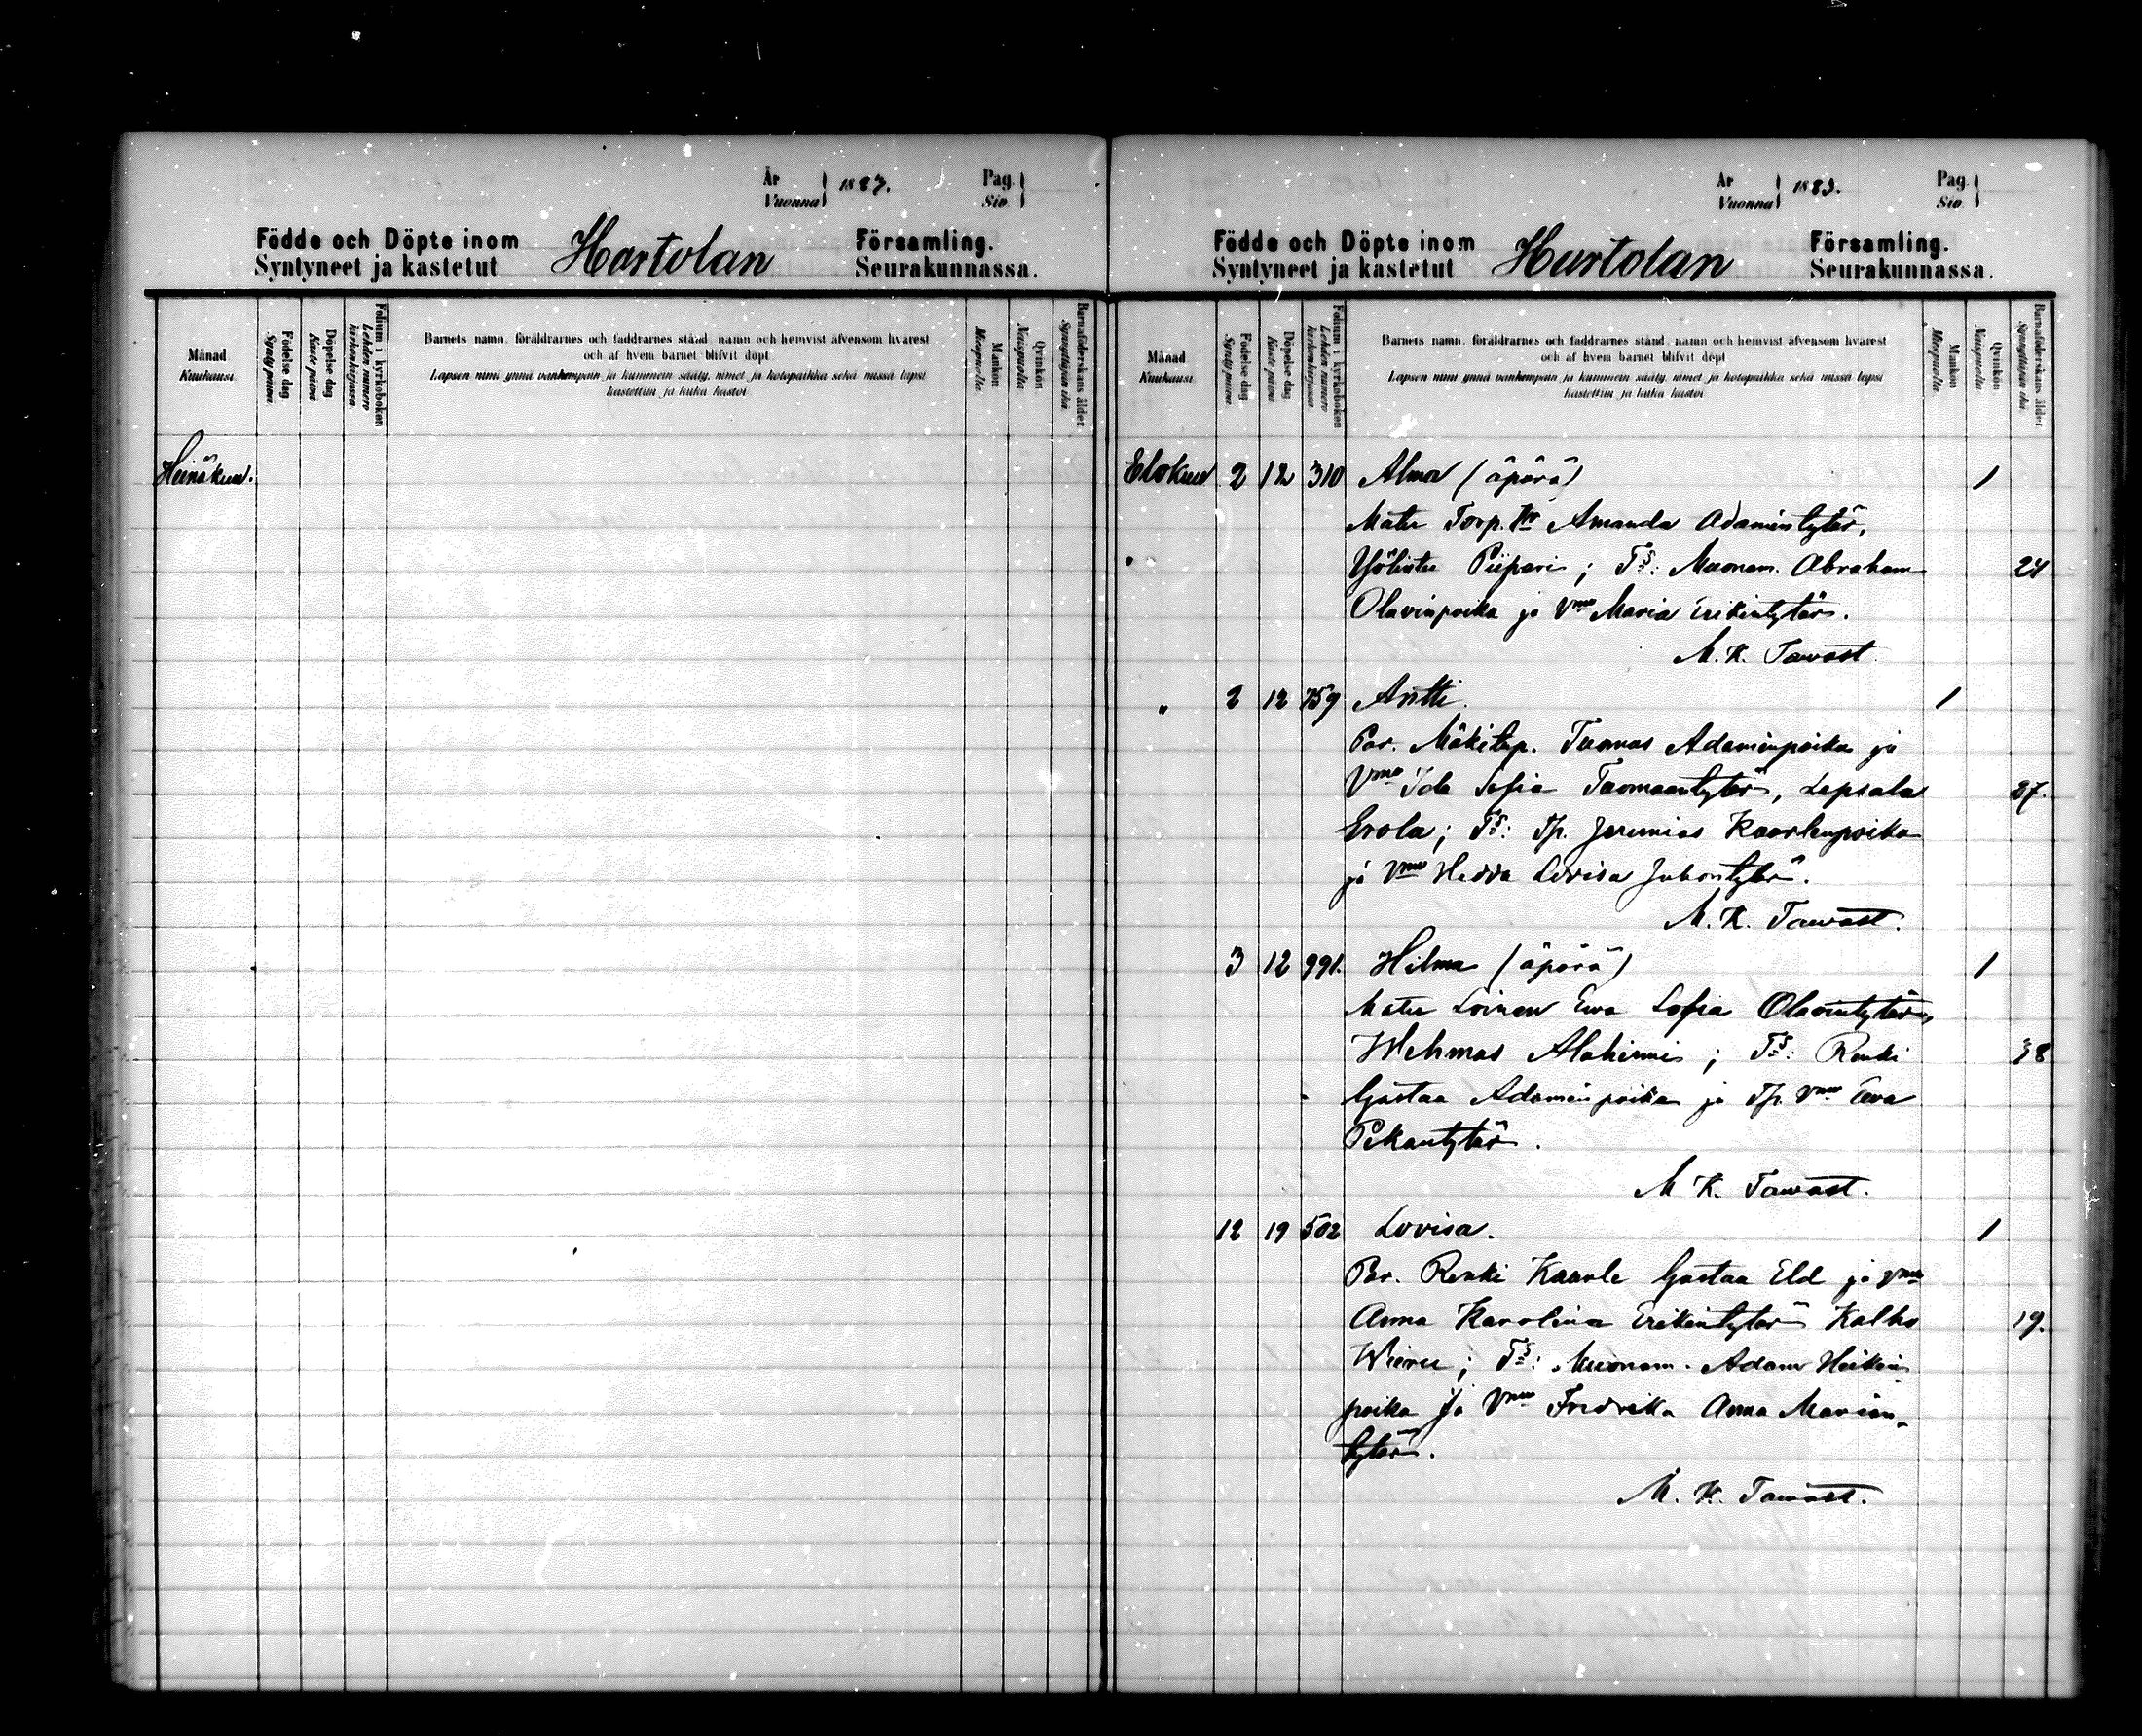 År
Vuonna 1883.
Pag.
Siv.
Födde och Döpte inom Hartolan Församling.
Syntyneet ja kastetut Seurakunnassa.
Månad
Kuukausi
Födelse dag
Synty päivä
Döpelse dag
Kaste päivä
Folium i kyrkoboken
Lehden numero kirkonkirjassa
Barnets namn, föräldrarnes och faddrarnes stånd, namn och hemvist äfvensom hvarest
och af hvem barnet blifvit döpt
Lapsen nimi ynnä vanhempain ja kummein sääty, nimet ja kotopaikka sekä missä lapsi
kastettiin ja kuka kastoi
Mankön
Miespuolia
Qvinkön
Naispuolia
Barnaföderskans ålder
Synnyttäjän ikä
Heinäkuu.
År
Vuonna 1883.
Pag.
Siv.
Födde och Döpte inom Hartolan Församling.
Syntyneet ja kastetut Seurakunnassa.
Månad
Kuukausi
Födelse dag
Synty päivä
Döpelse dag
Kaste päivä
Folium i kyrkoboken
Lehden numero kirkonkirjassa
Barnets namn, föräldrarnes och faddrarnes stånd, namn och hemvist äfvensom hvarest
och af hvem barnet blifvit döpt
Lapsen nimi ynnä vanhempain ja kummein sääty, nimet ja kotopaikka sekä missä lapsi
kastettiin ja kuka kastoi
Mankön
Miespuolia
Qvinkön
Naispuolia
Barnaföderskans ålder
Synnyttäjän ikä
Elokuu 2 12 310 Alma (äpärä) 1
Mater Torp. Amanda Adamintytär,
Piipari; Ts: Muonam. Abraham 24
Olavinpoika ja Vmo Maria Erikintytär.
M. K. Tawast
" 2 12 759 Antti. 1
Par. Mäkitup. Tuomas Adaminpoika ja
Vmo Ida Sofia Tuomaantytär, Lepsala 27.
Erola; Ts: Tp. Jeremias Kaarlenpoika
ja Vmo Hedda Lovisa Juhontytär.
M. K. Tawast.
3 12 991. Hilma (äpärä) 1
Mater Loinen Ewa Sofia Olavintytär,
Wehmas Alahimmi; Ts: Renki 38
Gustaa Adaminpoika ja Tp. Vmo Ewa
Pekantytär.
M K. Tawast.
12 19 502 Lovisa. 1
Par. Renki Kaarle Gustaa Eld ja Vmo
Anna Karolina Erikintytär Kalho 19.
Wieru; Ts: Muonam. Adam Heikin-
poika ja Vmo Fredrika Anna Marian-
tytär.
M. K. Tawast.